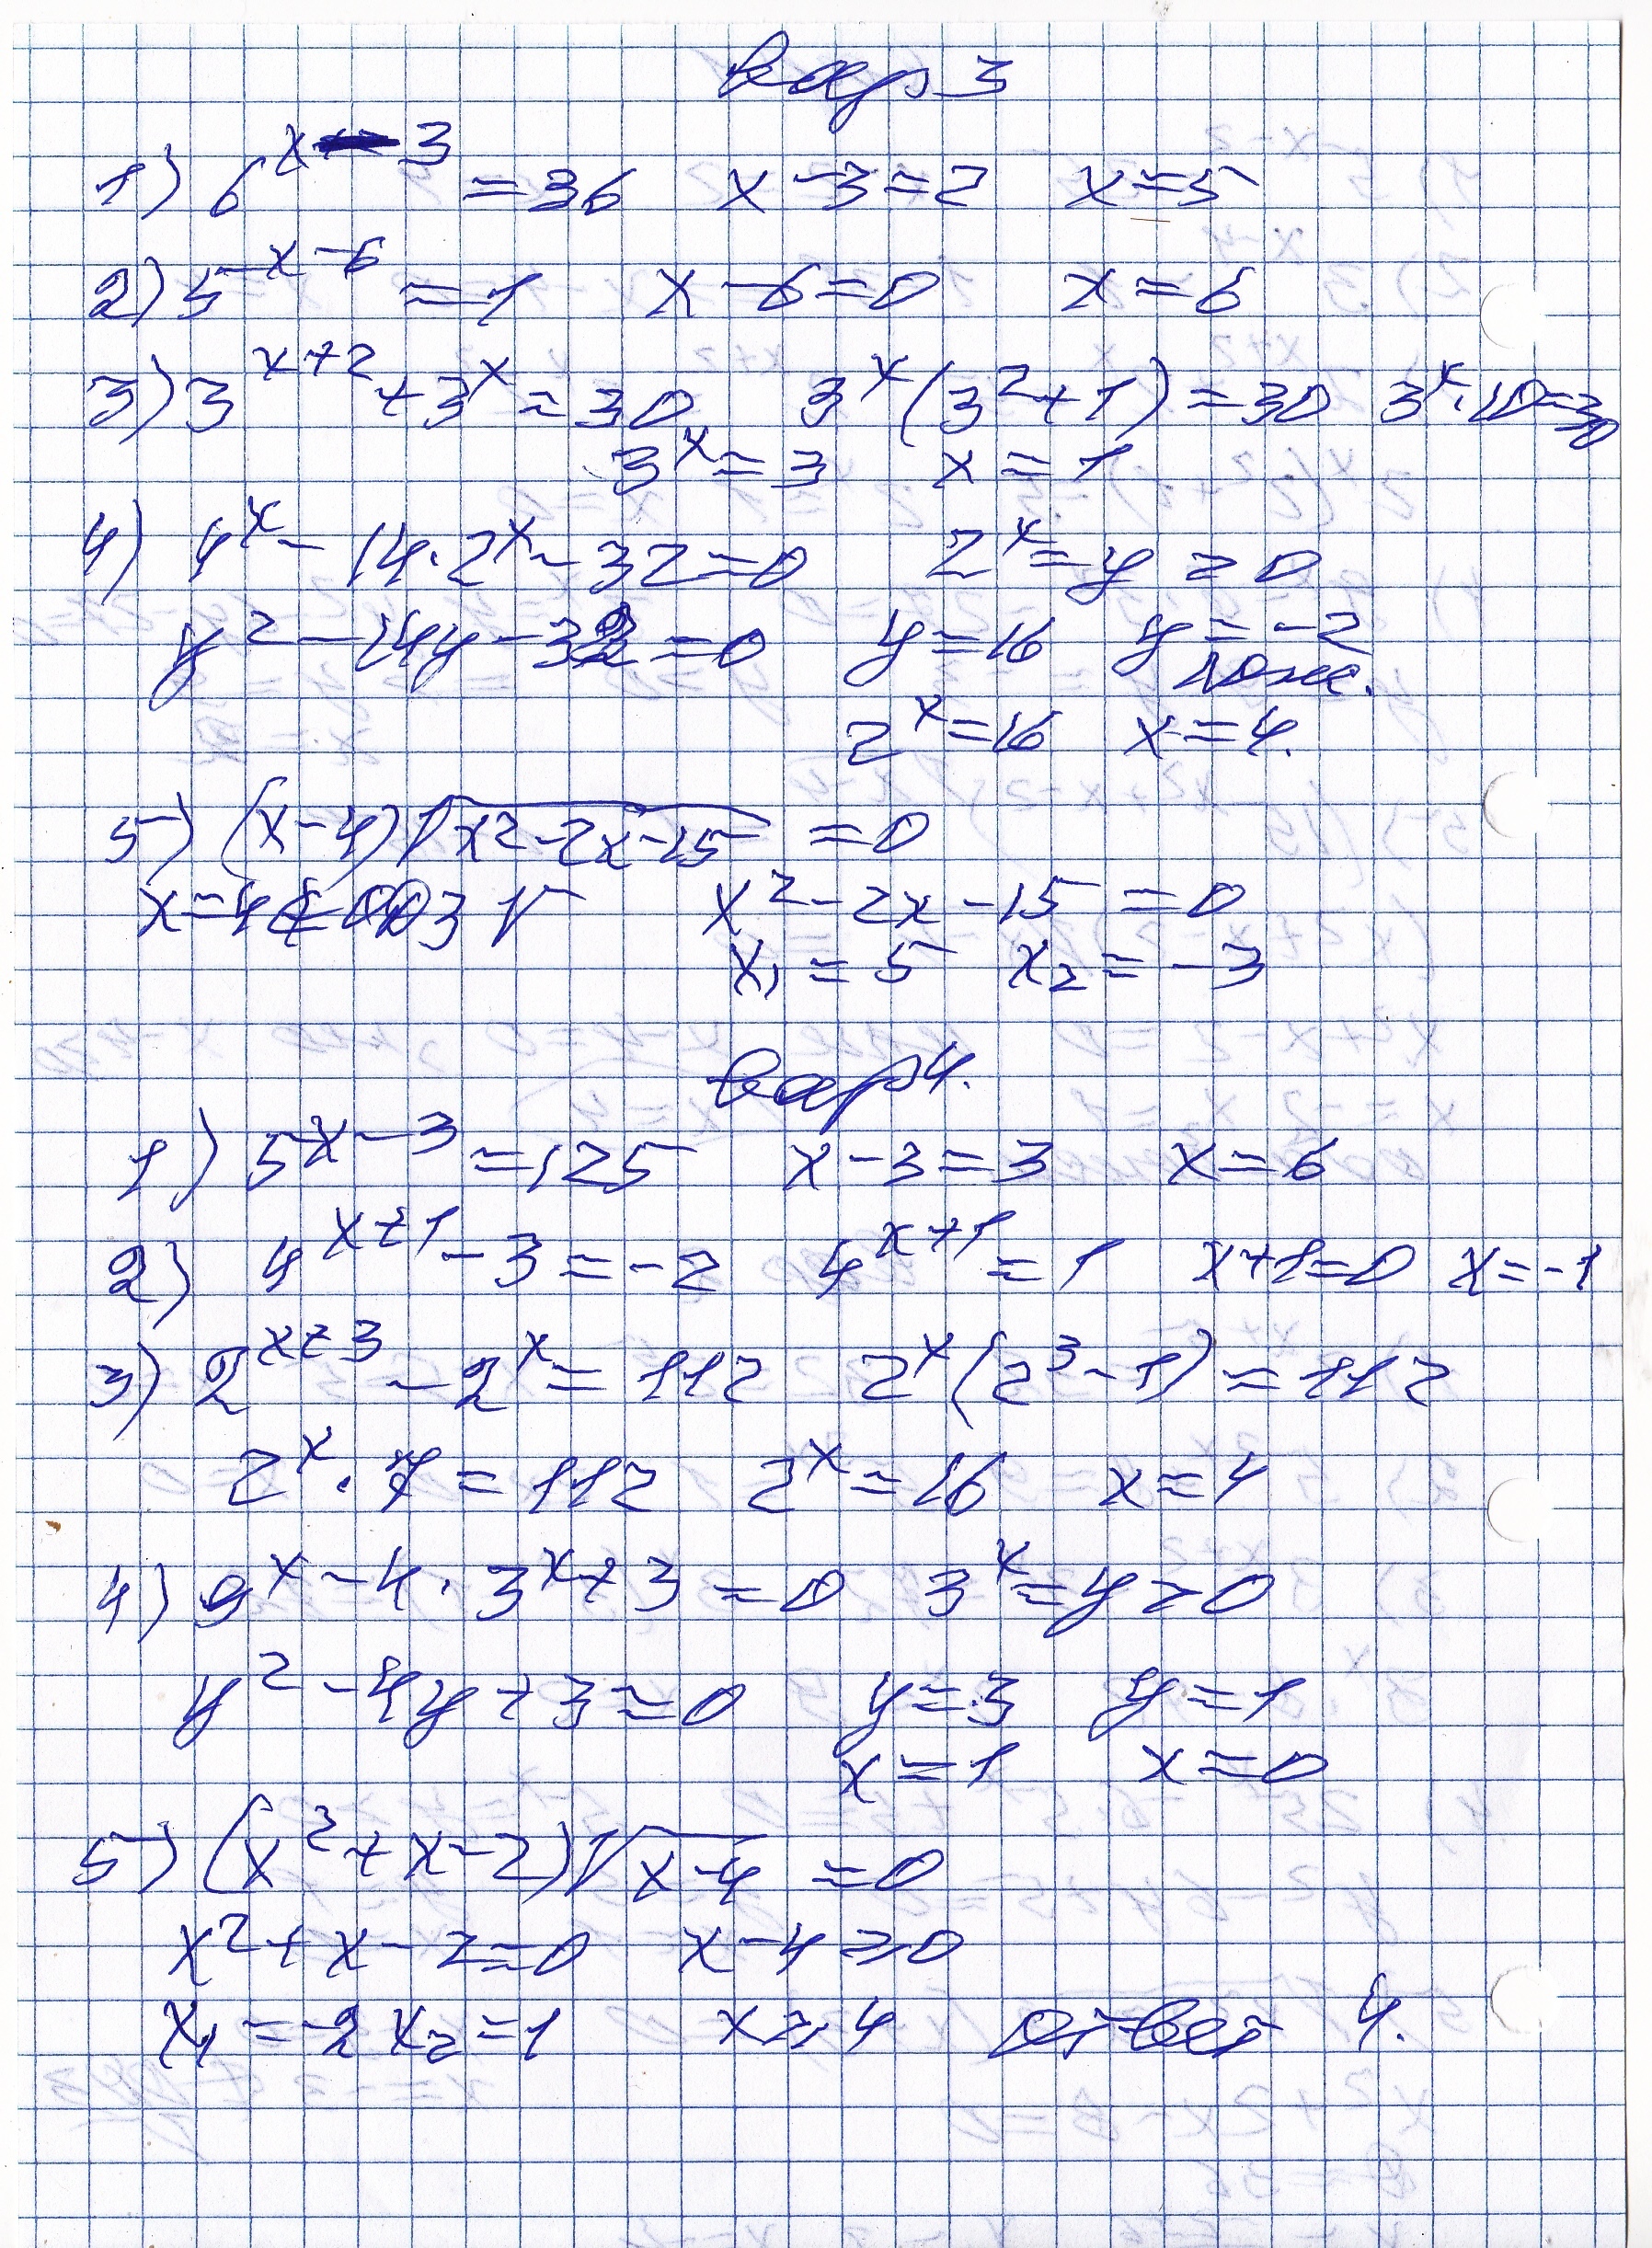 вар 3
1) 6^(x-3) = 36 x-3=2 x=5
2) 5^(x-6) = 1 x-6=0 x=6
3) 3^(x+2) + 3^x = 30 3^x(3²+1)=30 3^x·10=30
3^x=3 x=1
4) 4^x - 14·2^x - 32=0 2^x=y >0
y²-14y-32=0 y=16 y=-2
2^x=16 x=4.
5) (x-4)√(x²-2x-15) =0
x=4 ∉ ООЗ √ x²-2x-15=0
x₁=5 x₂=-3
вар 4.
1) 5^(x-3)=125 x-3=3 x=6
2) 4^(x+1)-3=-2 4^(x+1)=1 x+1=0 x=-1
3) 2^(x+3)-2^x=112 2^x(2³-1)=112
2^x·7=112 2^x=16 x=4
4) 9^x-4·3^x+3=0 3^x=y>0
y²-4y+3=0 y=3 y=1
x=1 x=0
5) (x²+x-2)√(x-4)=0
x²+x-2=0 x-4≥0
x₁=-2 x₂=1 x≥4 Ответ 4.